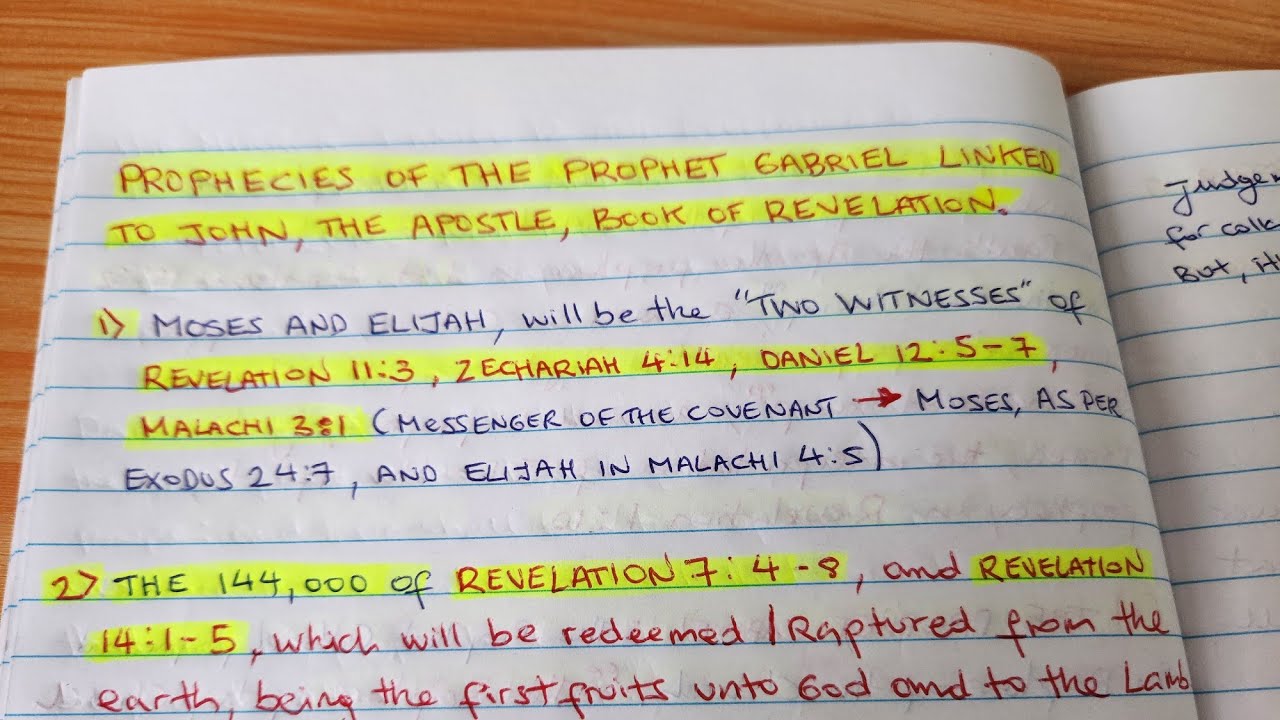 PROPHECIES OF THE PROPHET GABRIEL LINKED
TO JOHN, THE APOSTLE, BOOK OF REVELATION.
1) MOSES AND ELIJAH, will be the "TWO WITNESSES" of
REVELATION 11:3, ZECHARIAH 4:14, DANIEL 12:5-7,
MALACHI 3:1 (MESSENGER OF THE COVENANT → MOSES, AS PER
EXODUS 24:7, AND ELIJAH IN MALACHI 4:5)
2) THE 144,000 of REVELATION 7:4-8, and REVELATION
14:1-5, which will be redeemed/Raptured from the
earth, being the firstfruits unto God and to the Lamb
for
But,